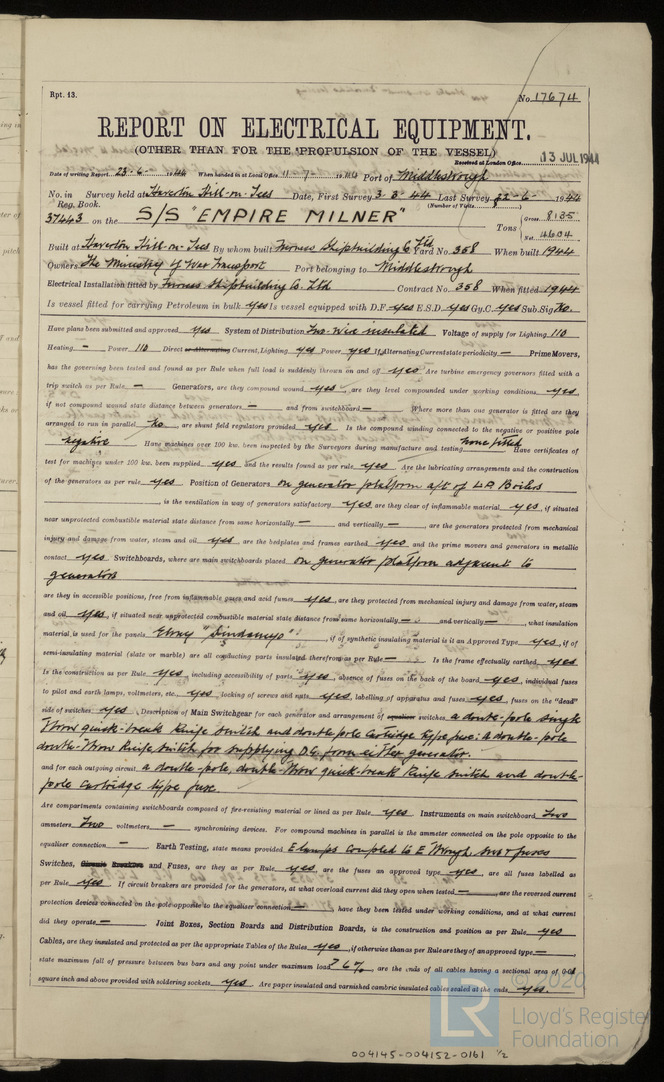 Rpt. 13.
No. 17674
REPORT ON ELECTRICAL EQUIPMENT.
(OTHER THAN FOR THE PROPULSION OF THE VESSEL)
Received at London Office 13 JUL 1944
Date of writing Report 23-6- 1944 When handed in at Local Office 11-7- 1944 Port of Middlesbrough
No. in Survey held at Haverton Hill-on-Tees Date, First Survey 3-3-44 Last Survey 22-6- 1944
Reg. Book. (Number of Visits 8)
37443 on the S/S "EMPIRE MILNER" Tons { Gross 8135
Net 4604
Built at Haverton Hill-on-Tees By whom built Furness Shipbuilding Co Ltd Yard No. 358 When built 1944
Owners The Ministry of War Transport Port belonging to Middlesbrough
Electrical Installation fitted by Furness Shipbuilding Co. Ltd Contract No. 358 When fitted 1944
Is vessel fitted for carrying Petroleum in bulk yes Is vessel equipped with D.F. yes E.S.D. yes Gy.C. yes Sub.Sig No.
Have plans been submitted and approved yes System of Distribution Two-Wire insulated Voltage of supply for Lighting 110
Heating - Power 110 Direct or Alternating Current, Lighting yes Power yes If Alternating Current state periodicity - Prime Movers,
has the governing been tested and found as per Rule when full load is suddenly thrown on and off yes Are turbine emergency governors fitted with a
trip switch as per Rule - Generators, are they compound wound yes, are they level compounded under working conditions yes
if not compound wound state distance between generators - and from switchboard - Where more than one generator is fitted are they
arranged to run in parallel No., are shunt field regulators provided yes Is the compound winding connected to the negative or positive pole
negative Have machines over 100 kw. been inspected by the Surveyors during manufacture and testing None fitted Have certificates of
test for machines under 100 kw. been supplied yes and the results found as per rule yes Are the lubricating arrangements and the construction
of the generators as per rule yes Position of Generators on generator platform aft of L.P. Boilers
, is the ventilation in way of generators satisfactory yes are they clear of inflammable material yes, if situated
near unprotected combustible material state distance from same horizontally - and vertically -, are the generators protected from mechanical
injury and damage from water, steam and oil yes, are the bedplates and frames earthed yes and the prime movers and generators in metallic
contact yes Switchboards, where are main switchboards placed on generator platform adjacent to
generators
are they in accessible positions, free from inflammable gases and acid fumes yes, are they protected from mechanical injury and damage from water, steam
and oil yes, if situated near unprotected combustible material state distance from same horizontally - and vertically -, what insulation
material is used for the panels Ebony "Sindanyo", if of synthetic insulating material is it an Approved Type yes, if of
semi-insulating material (slate or marble) are all conducting parts insulated therefrom as per Rule - Is the frame effectually earthed yes
Is the construction as per Rule yes, including accessibility of parts yes, absence of fuses on the back of the board yes, individual fuses
to pilot and earth lamps, voltmeters, etc. yes, locking of screws and nuts yes, labelling of apparatus and fuses yes, fuses on the "dead"
side of switches yes Description of Main Switchgear for each generator and arrangement of equaliser switches a double-pole single
throw quick-break Knife Switch and double pole Cartridge type fuse: a double-pole
double-throw Knife Switch for supplying D.G. from either generator.
and for each outgoing circuit a double-pole, double-throw quick-break Knife Switch and double-
pole Cartridge type fuse.
Are compartments containing switchboards composed of fire-resisting material or lined as per Rule yes Instruments on main switchboard Two
ammeters Two voltmeters - synchronising devices. For compound machines in parallel is the ammeter connected on the pole opposite to the
equaliser connection - Earth Testing, state means provided E lamps Coupled to E through Swt & fuses
Switches, Circuit Breakers and Fuses, are they as per Rule yes are the fuses an approved type yes, are all fuses labelled as
per Rule yes If circuit breakers are provided for the generators, at what overload current did they open when tested -, are the reversed current
protection devices connected on the pole opposite to the equaliser connection -, have they been tested under working conditions, and at what current
did they operate - Joint Boxes, Section Boards and Distribution Boards, is the construction and position as per Rule yes
Cables, are they insulated and protected as per the appropriate Tables of the Rules yes, if otherwise than as per Rule are they of an approved type -,
state maximum fall of pressure between bus bars and any point under maximum load, are the ends of all cables having a sectional area of 0.04
square inch and above provided with soldering sockets yes Are paper insulated and varnished cambric insulated cables sealed at the ends yes.
© 2020
LR
Lloyd's Register
Foundation
004145-004152-0161 1/2